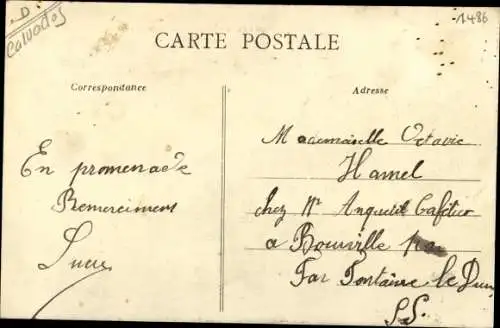 D
Calvados
1486
CARTE POSTALE
Correspondance
Adresse
En promenade
Remerciment
Mademoiselle Octavie
Hamel
chez Mr Anquetil Cafetier
a Bouville par
Par Fontaine le Dun